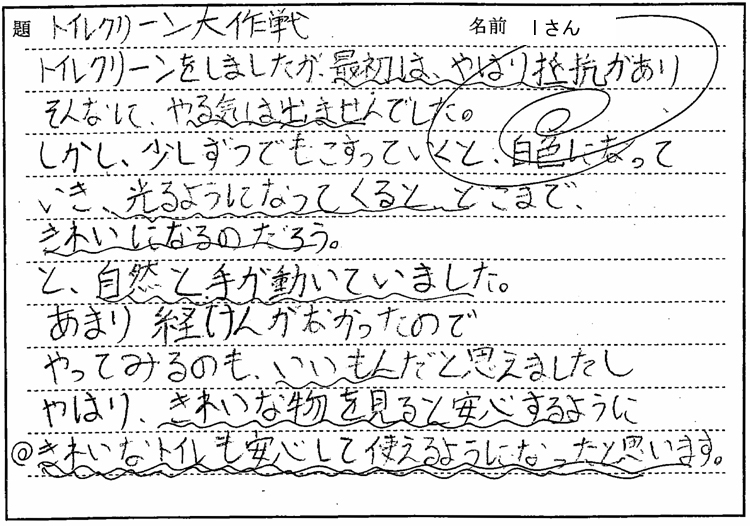 題 トイレクリーン大作戦 名前 Iさん
トイレクリーンをしましたが、最初は、やはり抵抗があり
そんなに、やる気は出ませんでした。
しかし、少しずつでもこすっていくと、白色になって
いき、光るようになってくると、どこまで、
きれいになるのだろう。
と、自然と手が動いていました。
あまり経けんがなかったので
やってみるのも、いいもんだと思えましたし
やはり、きれいな物を見ると安心するように
◎きれいなトイレも安心して使えるようになったと思います。